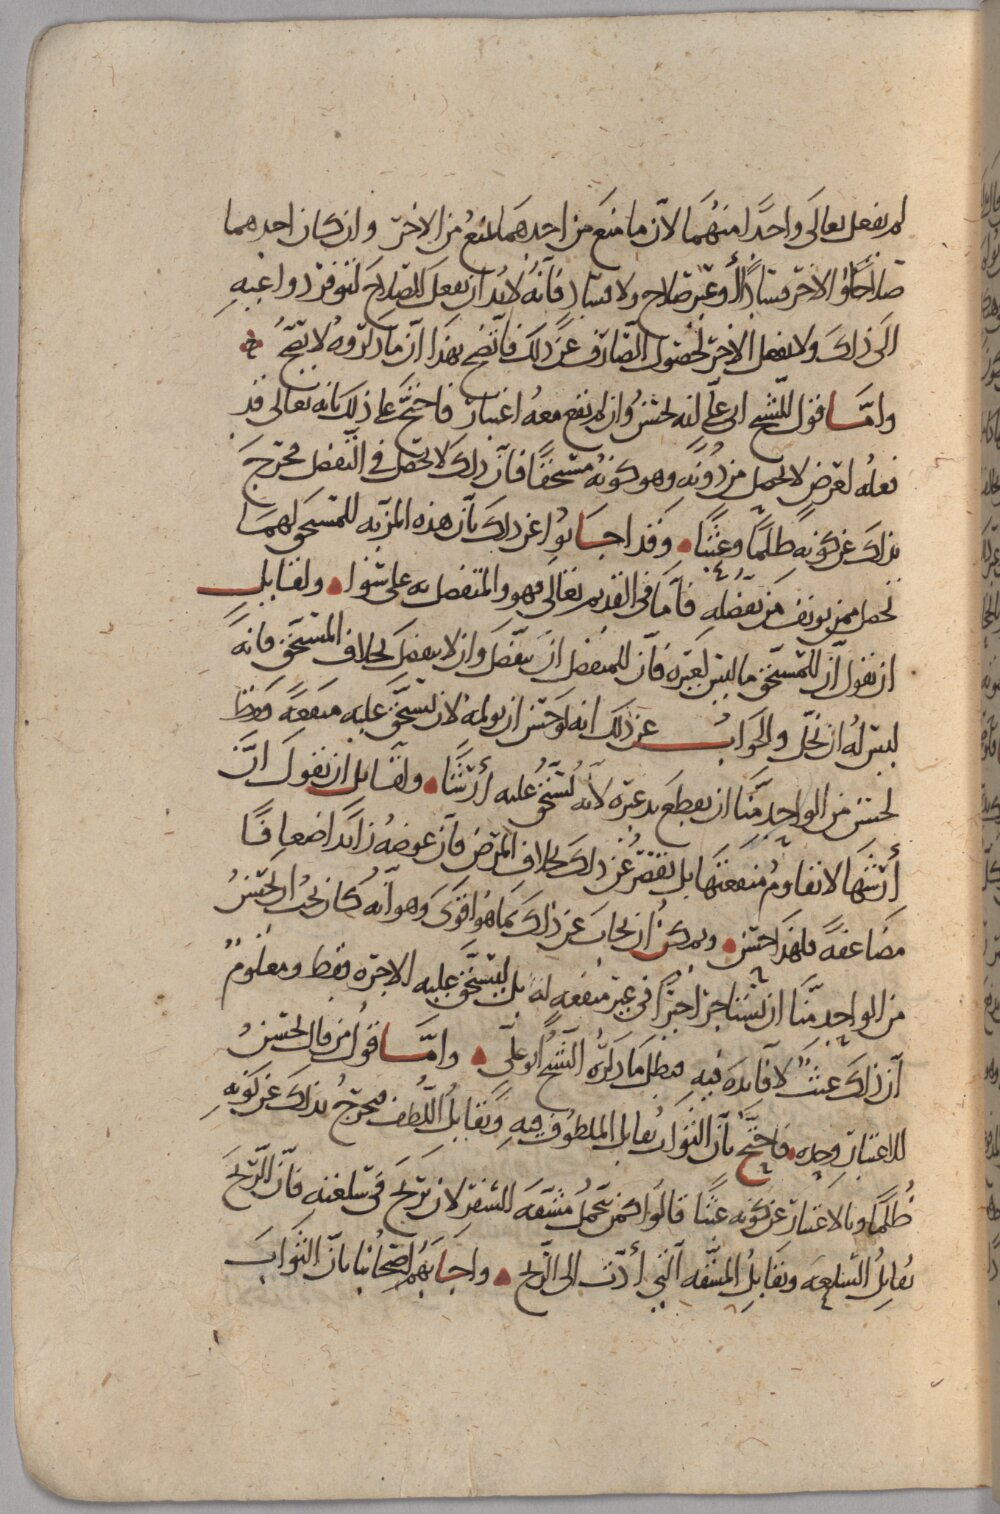 لم يفعل تعالى واحدًا منهما لأن ما منع من احدهما يمنع من الاخر وان كان احدهما
صلاحًا والاخر فسادًا أو غير صلاح ولا فساد فانه لا بد ان يفعل الصلاح لتوفر دواعيه
الى ذلك ولا يفعل الاخر لحصول الصارف عن ذلك فاتضح بهذا ان ما ذكروه لا يصح
وامّا قول الشيخ ابي علي انه يحسن وان لم يقع معه اعتبار فاحتج على ذلك بانه تعالى قد
فعله لغرض لا يحصل من دونه وهو كونه مستحقًا فان ذلك لا يحصل في التفضل فخرج
بذلك عن كونه ظلمًا وعبثًا وقد اجابوا عن ذلك بأن هذه المزية للمستحق انما
تحصل ممن يونف من تفضله فأما في القديم تعالى فهو والمتفضل به على سوا ولقايل
ان يقول ان للمستحق ما ليس لغيره فان للمتفضل ان يتفضل وان لا يتفضل بخلاف المستحق فانه
ليس له ان يخل والجواب عن ذلك انه لو حسن ان يولمه لان يستحق عليه منفعة فقط
لحسن من الواحد منّا ان يقطع يد غيره لأنه يستحق عليه أرشًا ولقايل ان يقول ان
أرشها لا يقاوم منفعتها بل يقصر عن ذلك بخلاف المرض فان عوضه زايد اضعافًا
مضاعفة فلهذا حسن ويمكن ان يجاب عن ذلك بما هو اقوى وهو انه كان يجب ان يحسن
من الواحد منّا ان يستاجر اجيرًا في غير منفعه له بل ليستحق عليه الاجره فقط ومعلوم
أن ذلك عبث لا فايده فيه فبطل ما ذكره الشيخ ابو علي وامّا قول من قال يحسن
للاعتبار وحده فاحتج بأن الثواب يقابل الملطوف فيه ويقابل اللطف فيخرج بذلك عن كونه
ظلمًا وبالاعتبار عن كونه عبثًا قالوا كمن يتحمل مشقة السفر لان يربح في سلعته فان الربح
يقابل السلعه ويقابل المشقه التي أدت الى الربح واجابهم اصحابنا بأن الثواب